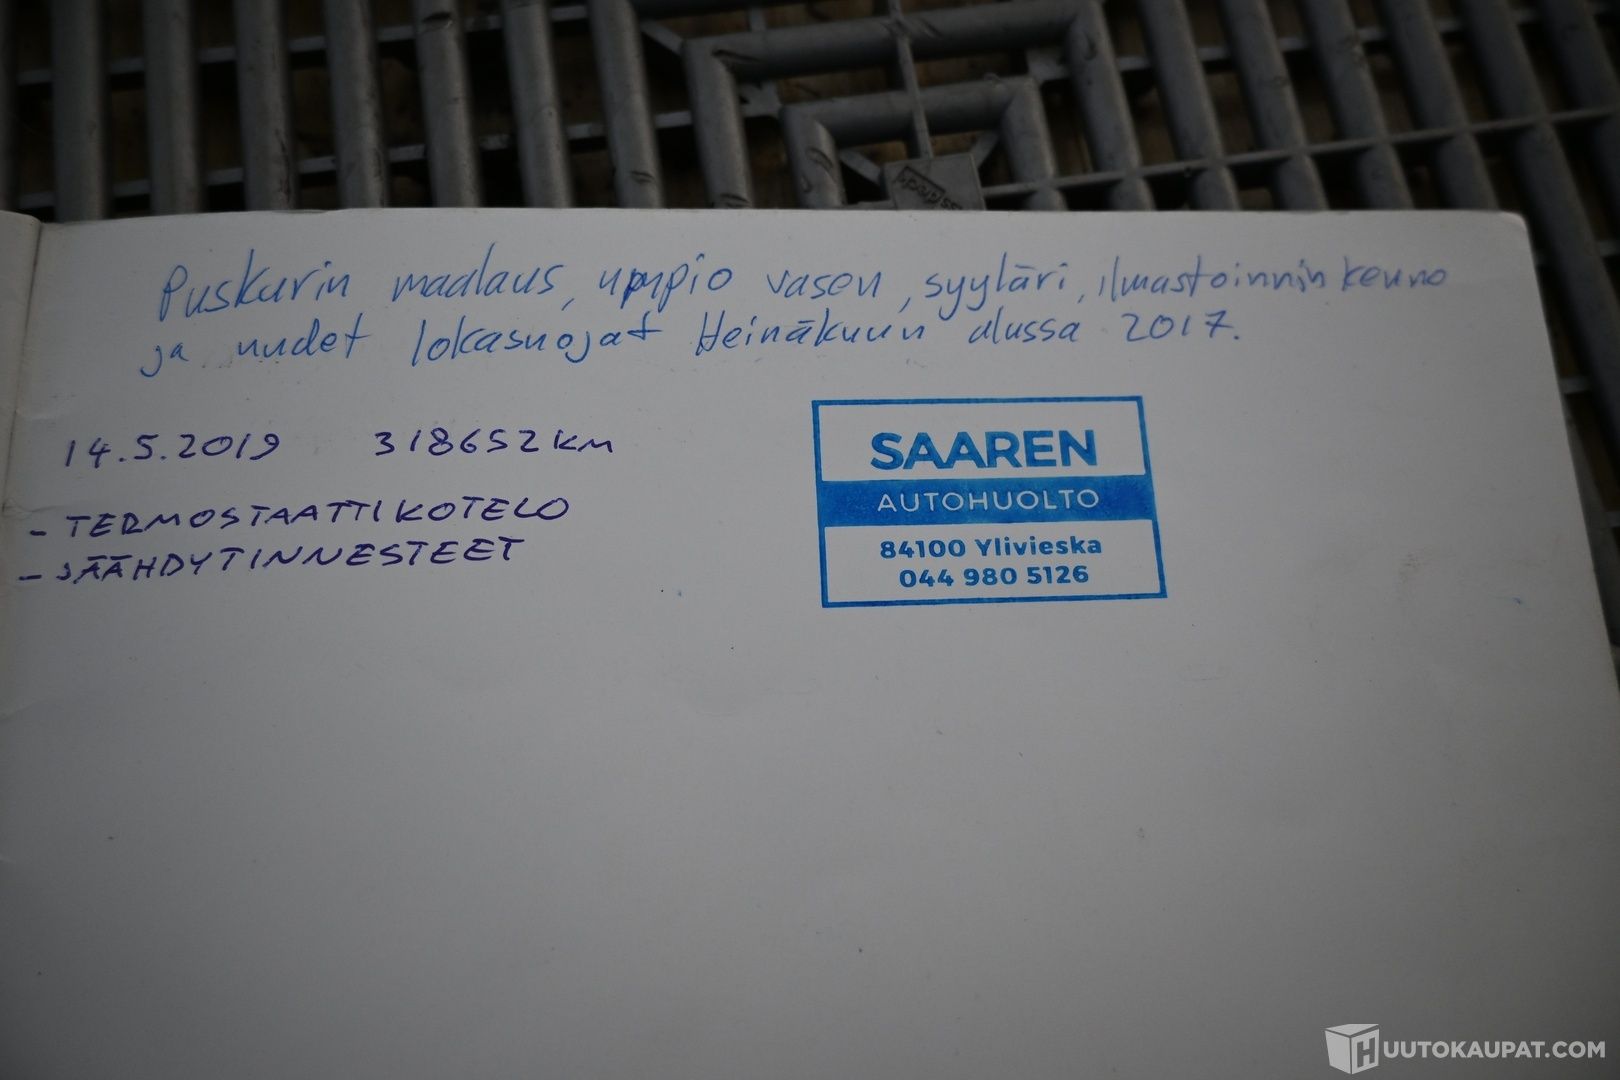 Puskurin maalaus, umpio vasen, syyläri, ilmastoinnin kenno
ja uudet lokasuojat Heinäkuun alussa 2017.
14.5.2019 318652 KM
- TERMOSTAATTIKOTELO
- JÄÄHDYTINNESTEET
SAAREN
AUTOHUOLTO
84100 Ylivieska
044 980 5126
HUUTOKAUPAT.COM